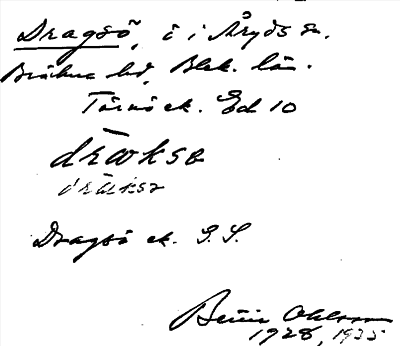 Dragsö, ö i Åryds sn.
Bräkne hd, Blek. län.
Tärnö ek. Ed 10
drākse
drākse
Dragsö ek. G.S.
Bertil Ohlsson
1928, 1935